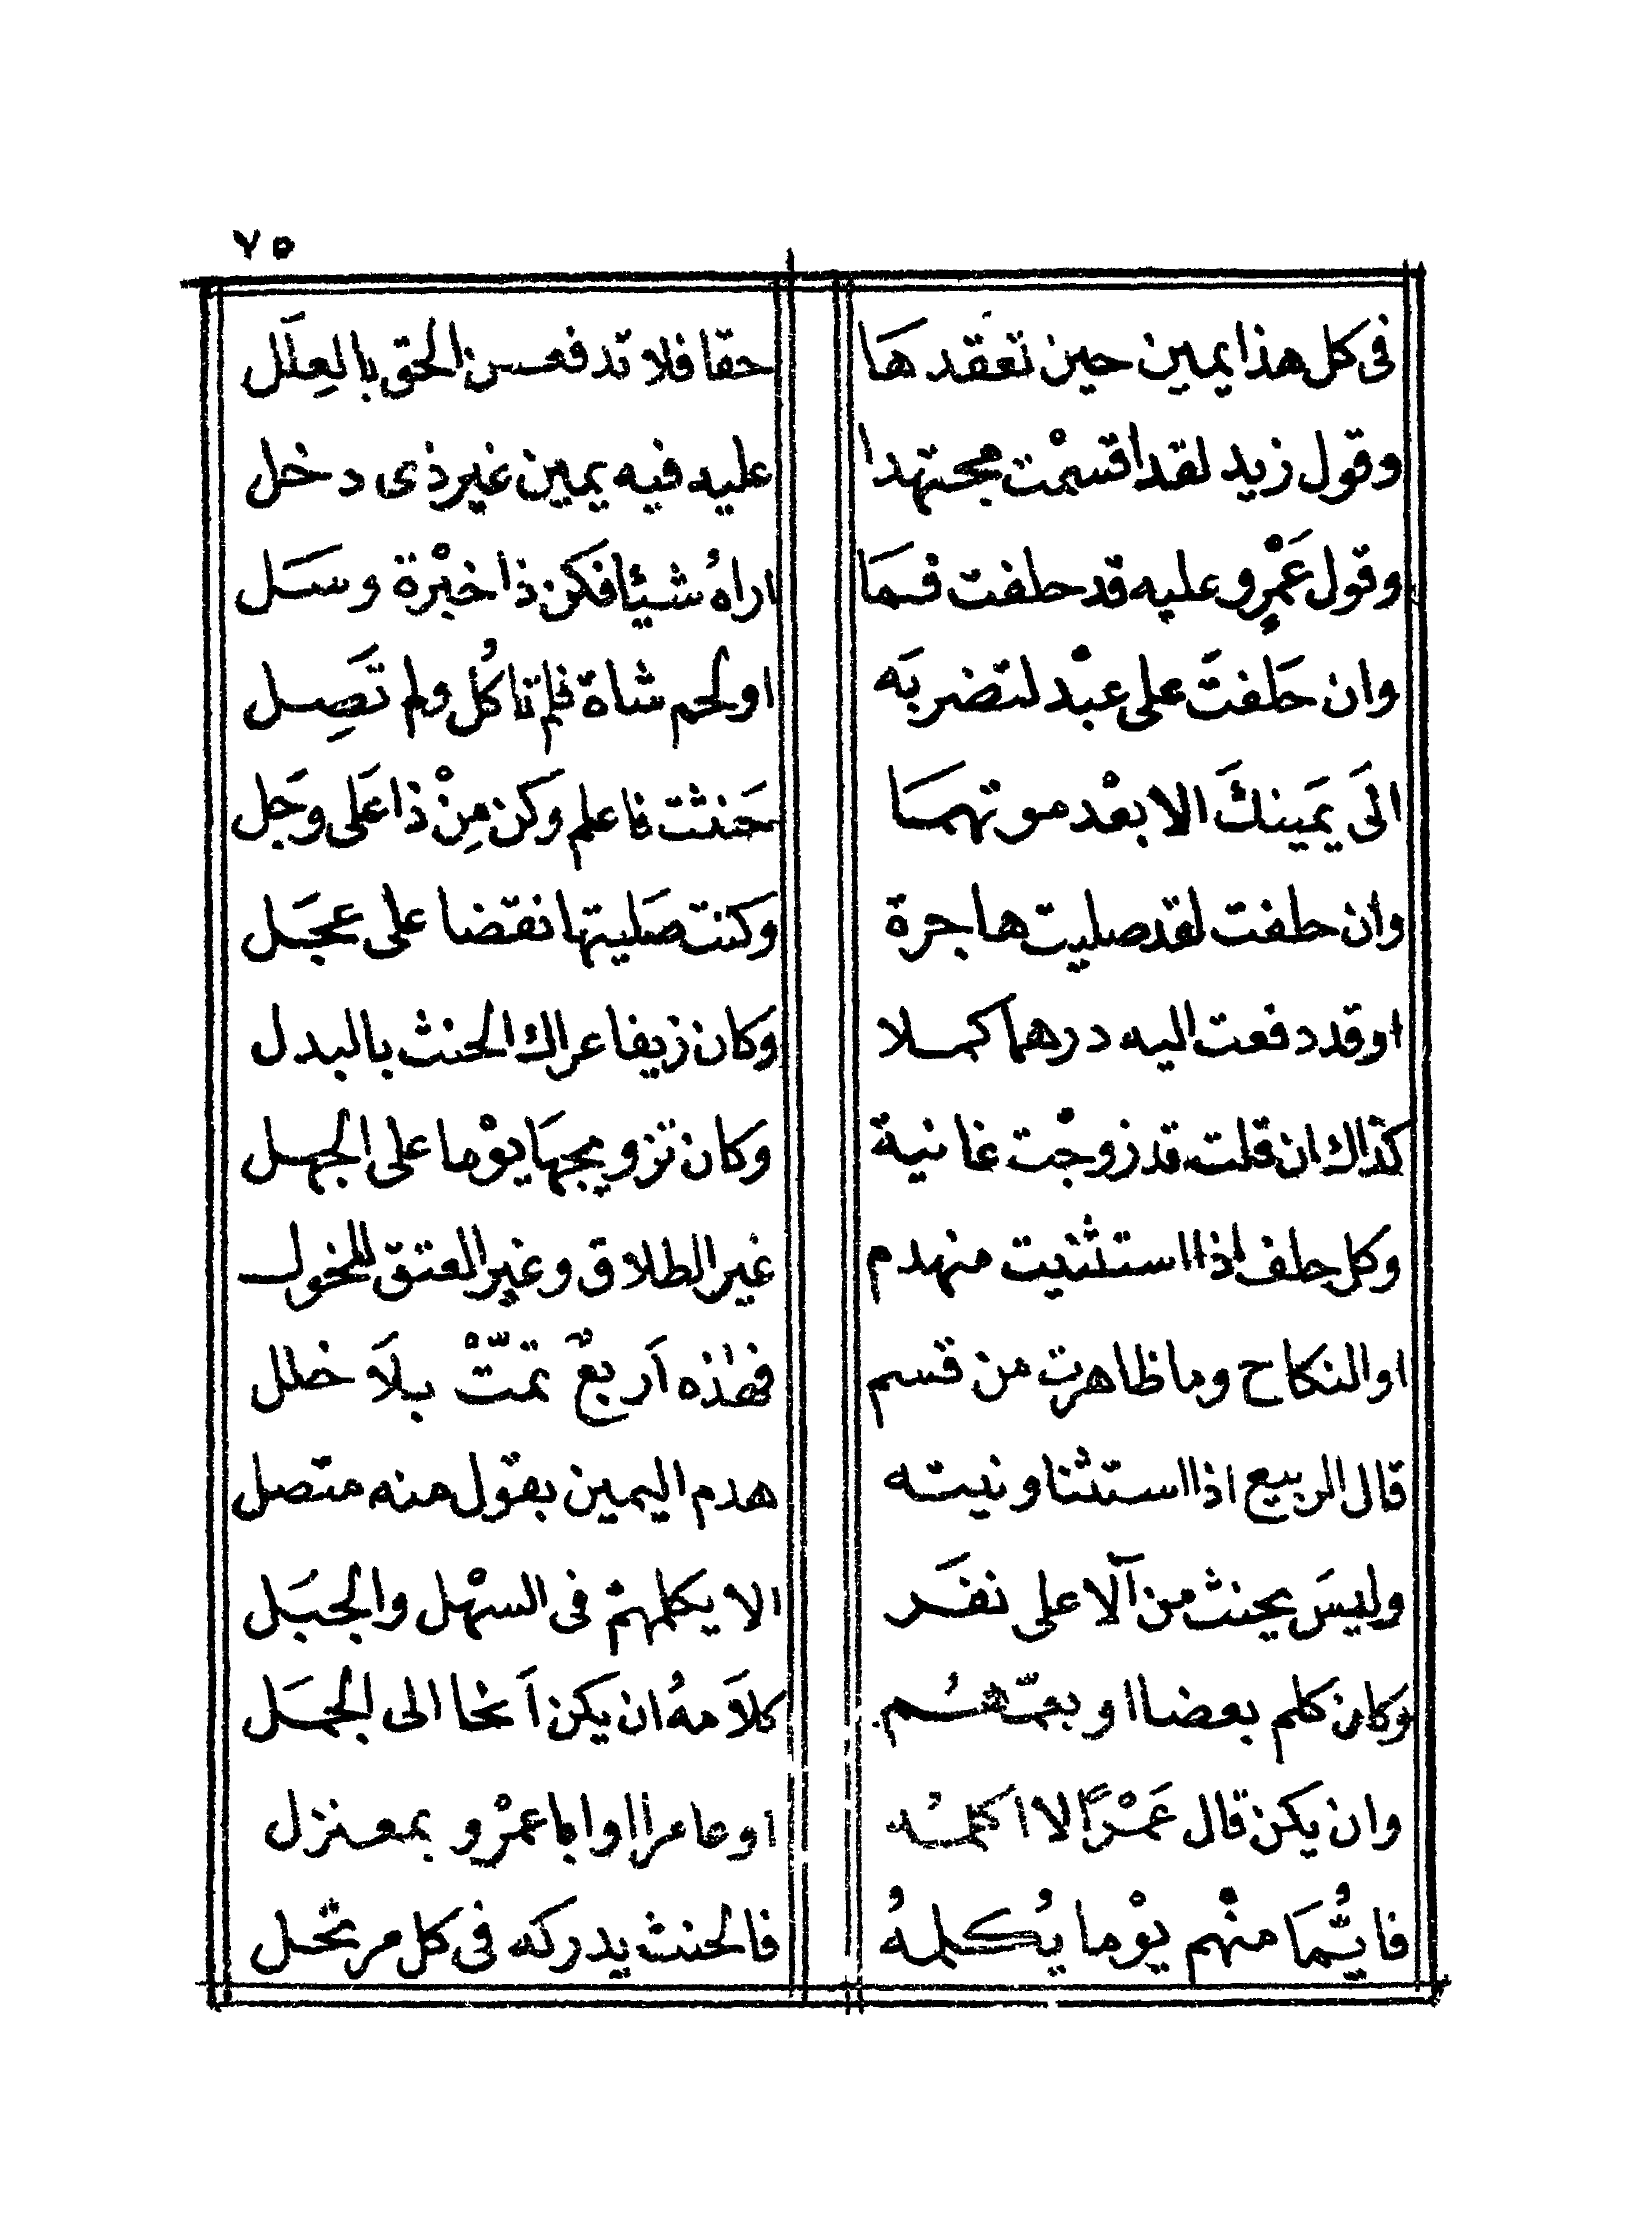 ٧٥
فى كل هذا يمين حين تعقدهَا حقا فلا تدفعن الحق بالعِلَل
وقول زيد لقد اقسمْت مجتهدا عليه فيه يمين غير ذى دخل
وقول عَمْرٍو عليه قد حلفت فمَا اراهُ شيئا فكَن ذا خبْرة وسَل
وان حَلفتَ على عبْد لتضربَه اولحم شاة فلم تاكُل ولم تَصِل
الَى يَمينكَ الا بعْد موتهمَا حَنثت فاعلم وكن مِنْ ذا عَلى وجَل
وان حلفت لقد صليت هاجرة وكنت صَليتها نقضا على عجَل
او قد دفعت اليه درهما كملا وكان زيفا عراك الحنث بالبدل
كذاك ان قلت قد زوجْت غانية وكان تزويجهَا يوْما على الجهل
وكل حلف اذا استثنيت منهدم غير الطلاق وغير العتق للخول
او النكاح وما ظاهرت من قسم فهٰذه اَربعٌ تمتّْ بلاَ خلل
قال الربيع اذا استثنا ونيته هدم اليمين بقول منه متصل
وليسَ يحنث من آلا على نفَر الا يكلمهمْ فى السهْل والجبَل
وكان كلم بعضا او بعمّهُم كلاَمهُ ان يكن اَنحا الى الجمَل
وان يكن قال عَمْرًا لا اكلمُه او عامرا او اباعمْرو بمعنزل
فايُّمَا منْهم يوْما يُكلمهُ فالحنث يدركه فى كل مرتحل